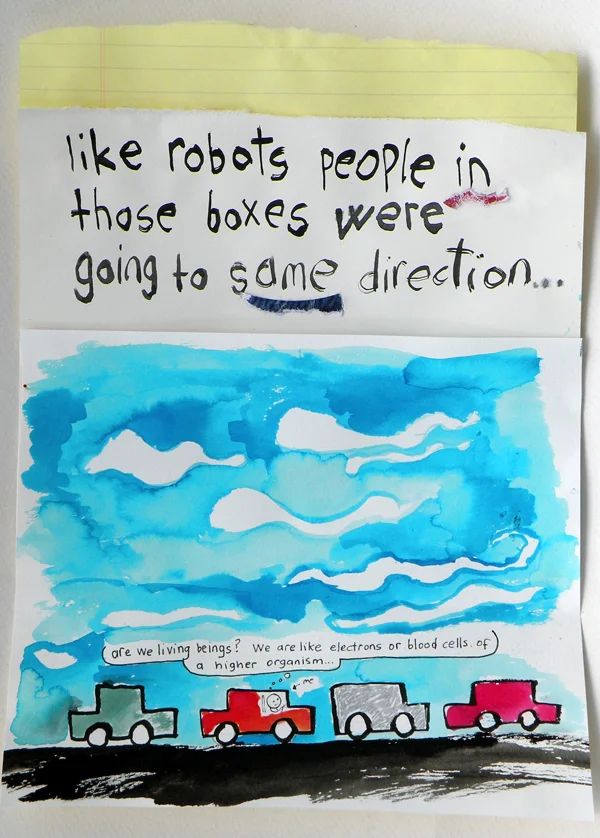 like robots people in
those boxes were
going to same direction...
are we living beings? We are like electrons or blood cells. of
a higher organism...
me